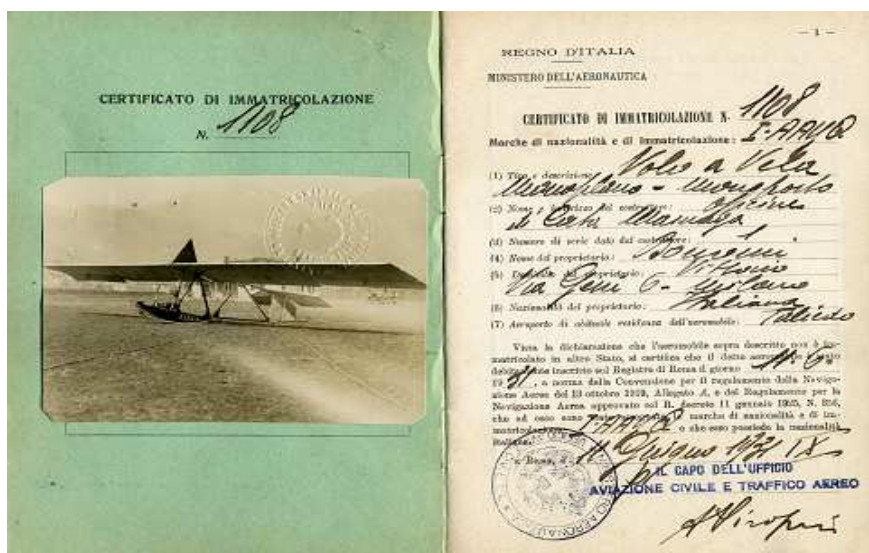 CERTIFICATO DI IMMATRICOLAZIONE
N. 1108
— 1 —
REGNO D'ITALIA
MINISTERO DELL'AERONAUTICA
CERTIFICATO DI IMMATRICOLAZIONE N. 1108
Marche di nazionalità e di immatricolazione:
(1) Tipo e descrizione: Volo a Vela
Monoplano - Monoposto
(2) Nome e indirizzo del costruttore:
(3) Numero di serie dato dal costruttore:
(4) Nome del proprietario:
(5) Domicilio del proprietario: Vittorio
Via 6 - Milano
(6) Nazionalità del proprietario: Italiana
(7) Aeroporto di abituale residenza dell'aeromobile: Taliedo
Vista la dichiarazione che l'aeromobile sopra descritto non è im-
matricolato in altro Stato, si certifica che il detto aeromobile è stato
debitamente inscritto sul Registro di Roma il giorno 11. 6.
1931, a norma della Convenzione per il regolamento della Naviga-
zione Aerea del 13 ottobre 1919, Allegato A, e del Regolamento per la
Navigazione Aerea approvato col R. decreto 11 gennaio 1925, N. 356,
che ad esso sono marche di nazionalità e di im-
matricolazione o che esso possiede la nazionalità
italiana.
Roma, 11 Giugno 1931 IX
IL CAPO DELL'UFFICIO
AVIAZIONE CIVILE E TRAFFICO AEREO